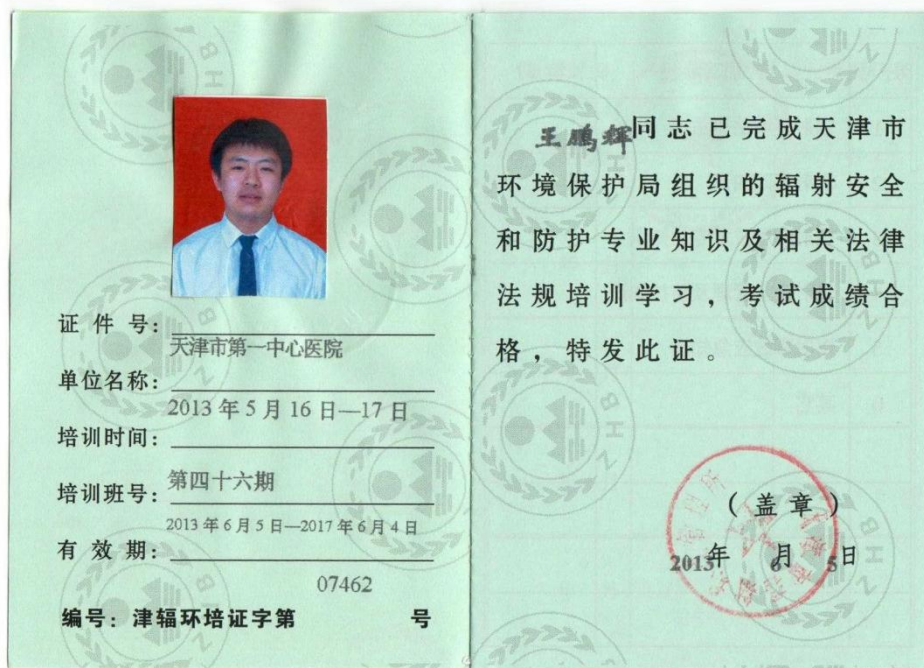 证 件 号：
天津市第一中心医院
单位名称：
2013 年 5 月 16 日—17 日
培训时间：
第四十六期
培训班号：
2013 年 6 月 5 日—2017 年 6 月 4 日
有 效 期：
07462
编号：津辐环培证字第 号
王鹏辉同志已完成天津市
环境保护局组织的辐射安全
和防护专业知识及相关法律
法规培训学习，考试成绩合
格，特发此证。
（盖章）
2013年 6月 5日
ZHBHZHB